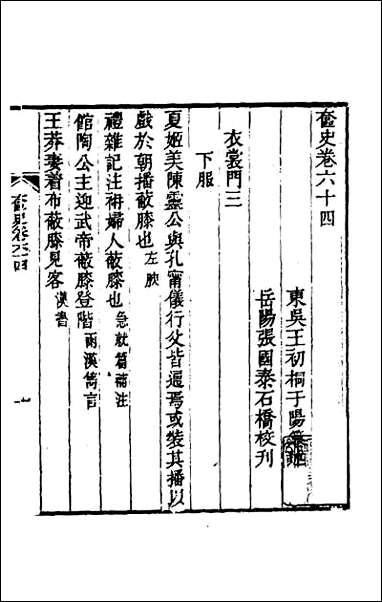 奩史卷六十四
東吳王初桐于陽
岳陽張國泰石橋校刊
衣裳門三
下服
夏姬美陳靈公與孔甯儀行父皆通焉或裝其播以
戲於朝播蔽膝也左腴
禮雜記注袡婦人蔽膝也急就篇補注
館陶公主迎武帝蔽膝登階兩漢雋言
王莽妻着布蔽膝見客漢書
奩史卷六十四